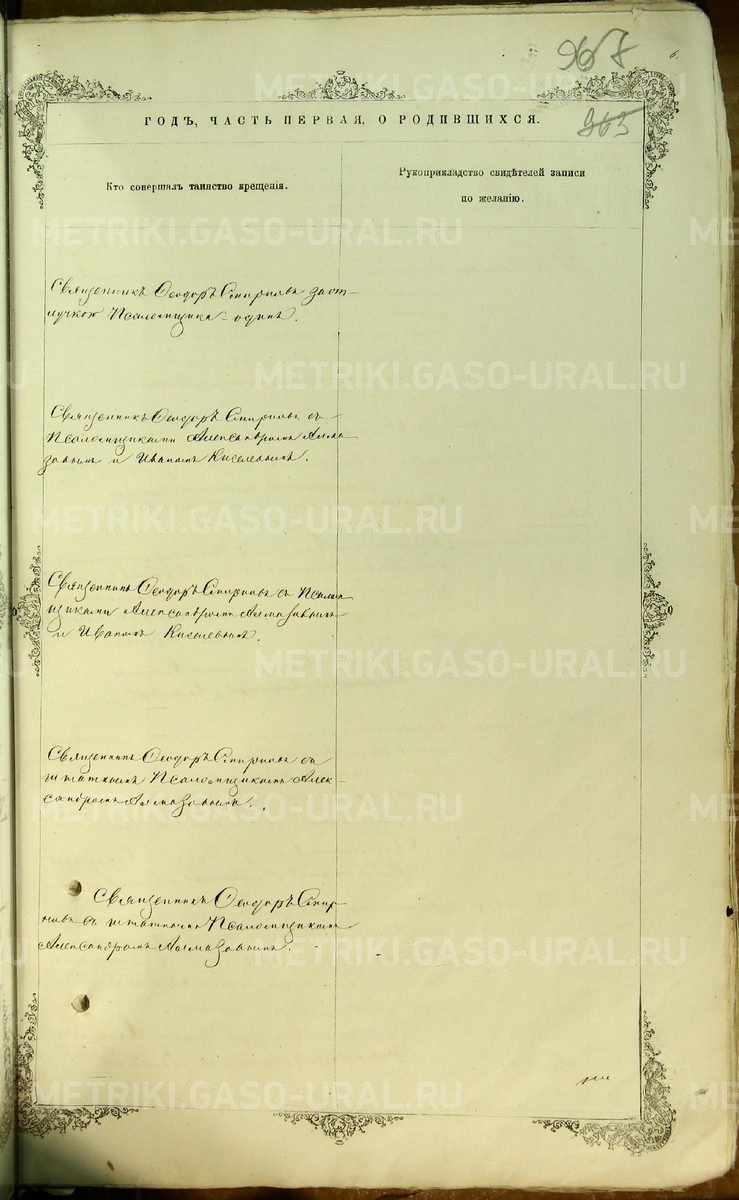 967
6.
963
ГОДЪ, ЧАСТЬ ПЕРВАЯ, О РОДИВШИХСЯ.
Кто совершалъ таинство крещенія.
Рукоприкладство свидѣтелей записи
по желанію.
Священникъ Ѳеодоръ Смирновъ за от-
лучкою Псаломщика - одинъ.
Священникъ Ѳеодоръ Смирновъ съ
Псаломщиками Александромъ Алма
зовымъ и Иваномъ Киселевымъ.
Священникъ Ѳеодоръ Смирновъ съ Псалом
щиками Александромъ Алмазовымъ
и Иваномъ Киселевымъ.
Священникъ Ѳеодоръ Смирновъ съ
штатнымъ Псаломщикомъ Алек-
сандромъ Алмазовымъ.
Священникъ Ѳеодоръ Смир
новъ съ штатнымъ Псаломщикомъ
Александромъ Алмазовымъ.
METRIKI.GASO-URAL.RU